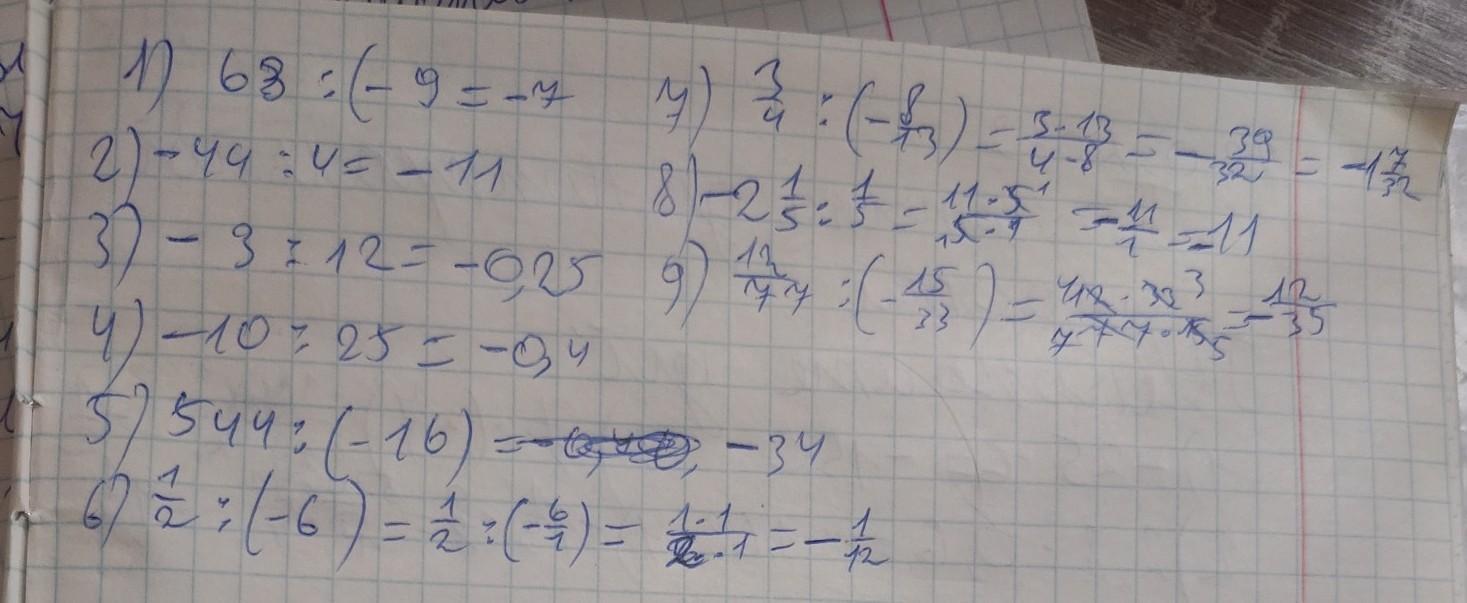 1) 63 : (- 9 = -7
2) -44 : 4 = -11
3) - 3 : 12 = -0,25
4) -10 : 25 = -0,4
5) 544 : (-16) = -34
6) 1/2 : (-6) = 1/2 : (-6/1) = 1·1/2·1 = -1/12
7) 3/4 : (-8/13) = 3·13/4·8 = -39/32 = -1 7/32
8) -2 1/5 : 1/5 = 11·5 1/1 5·1 = -11/1 = -11
9) 12/77 : (-15/33) = 12·33 3/7 77·15 5 = -12/35